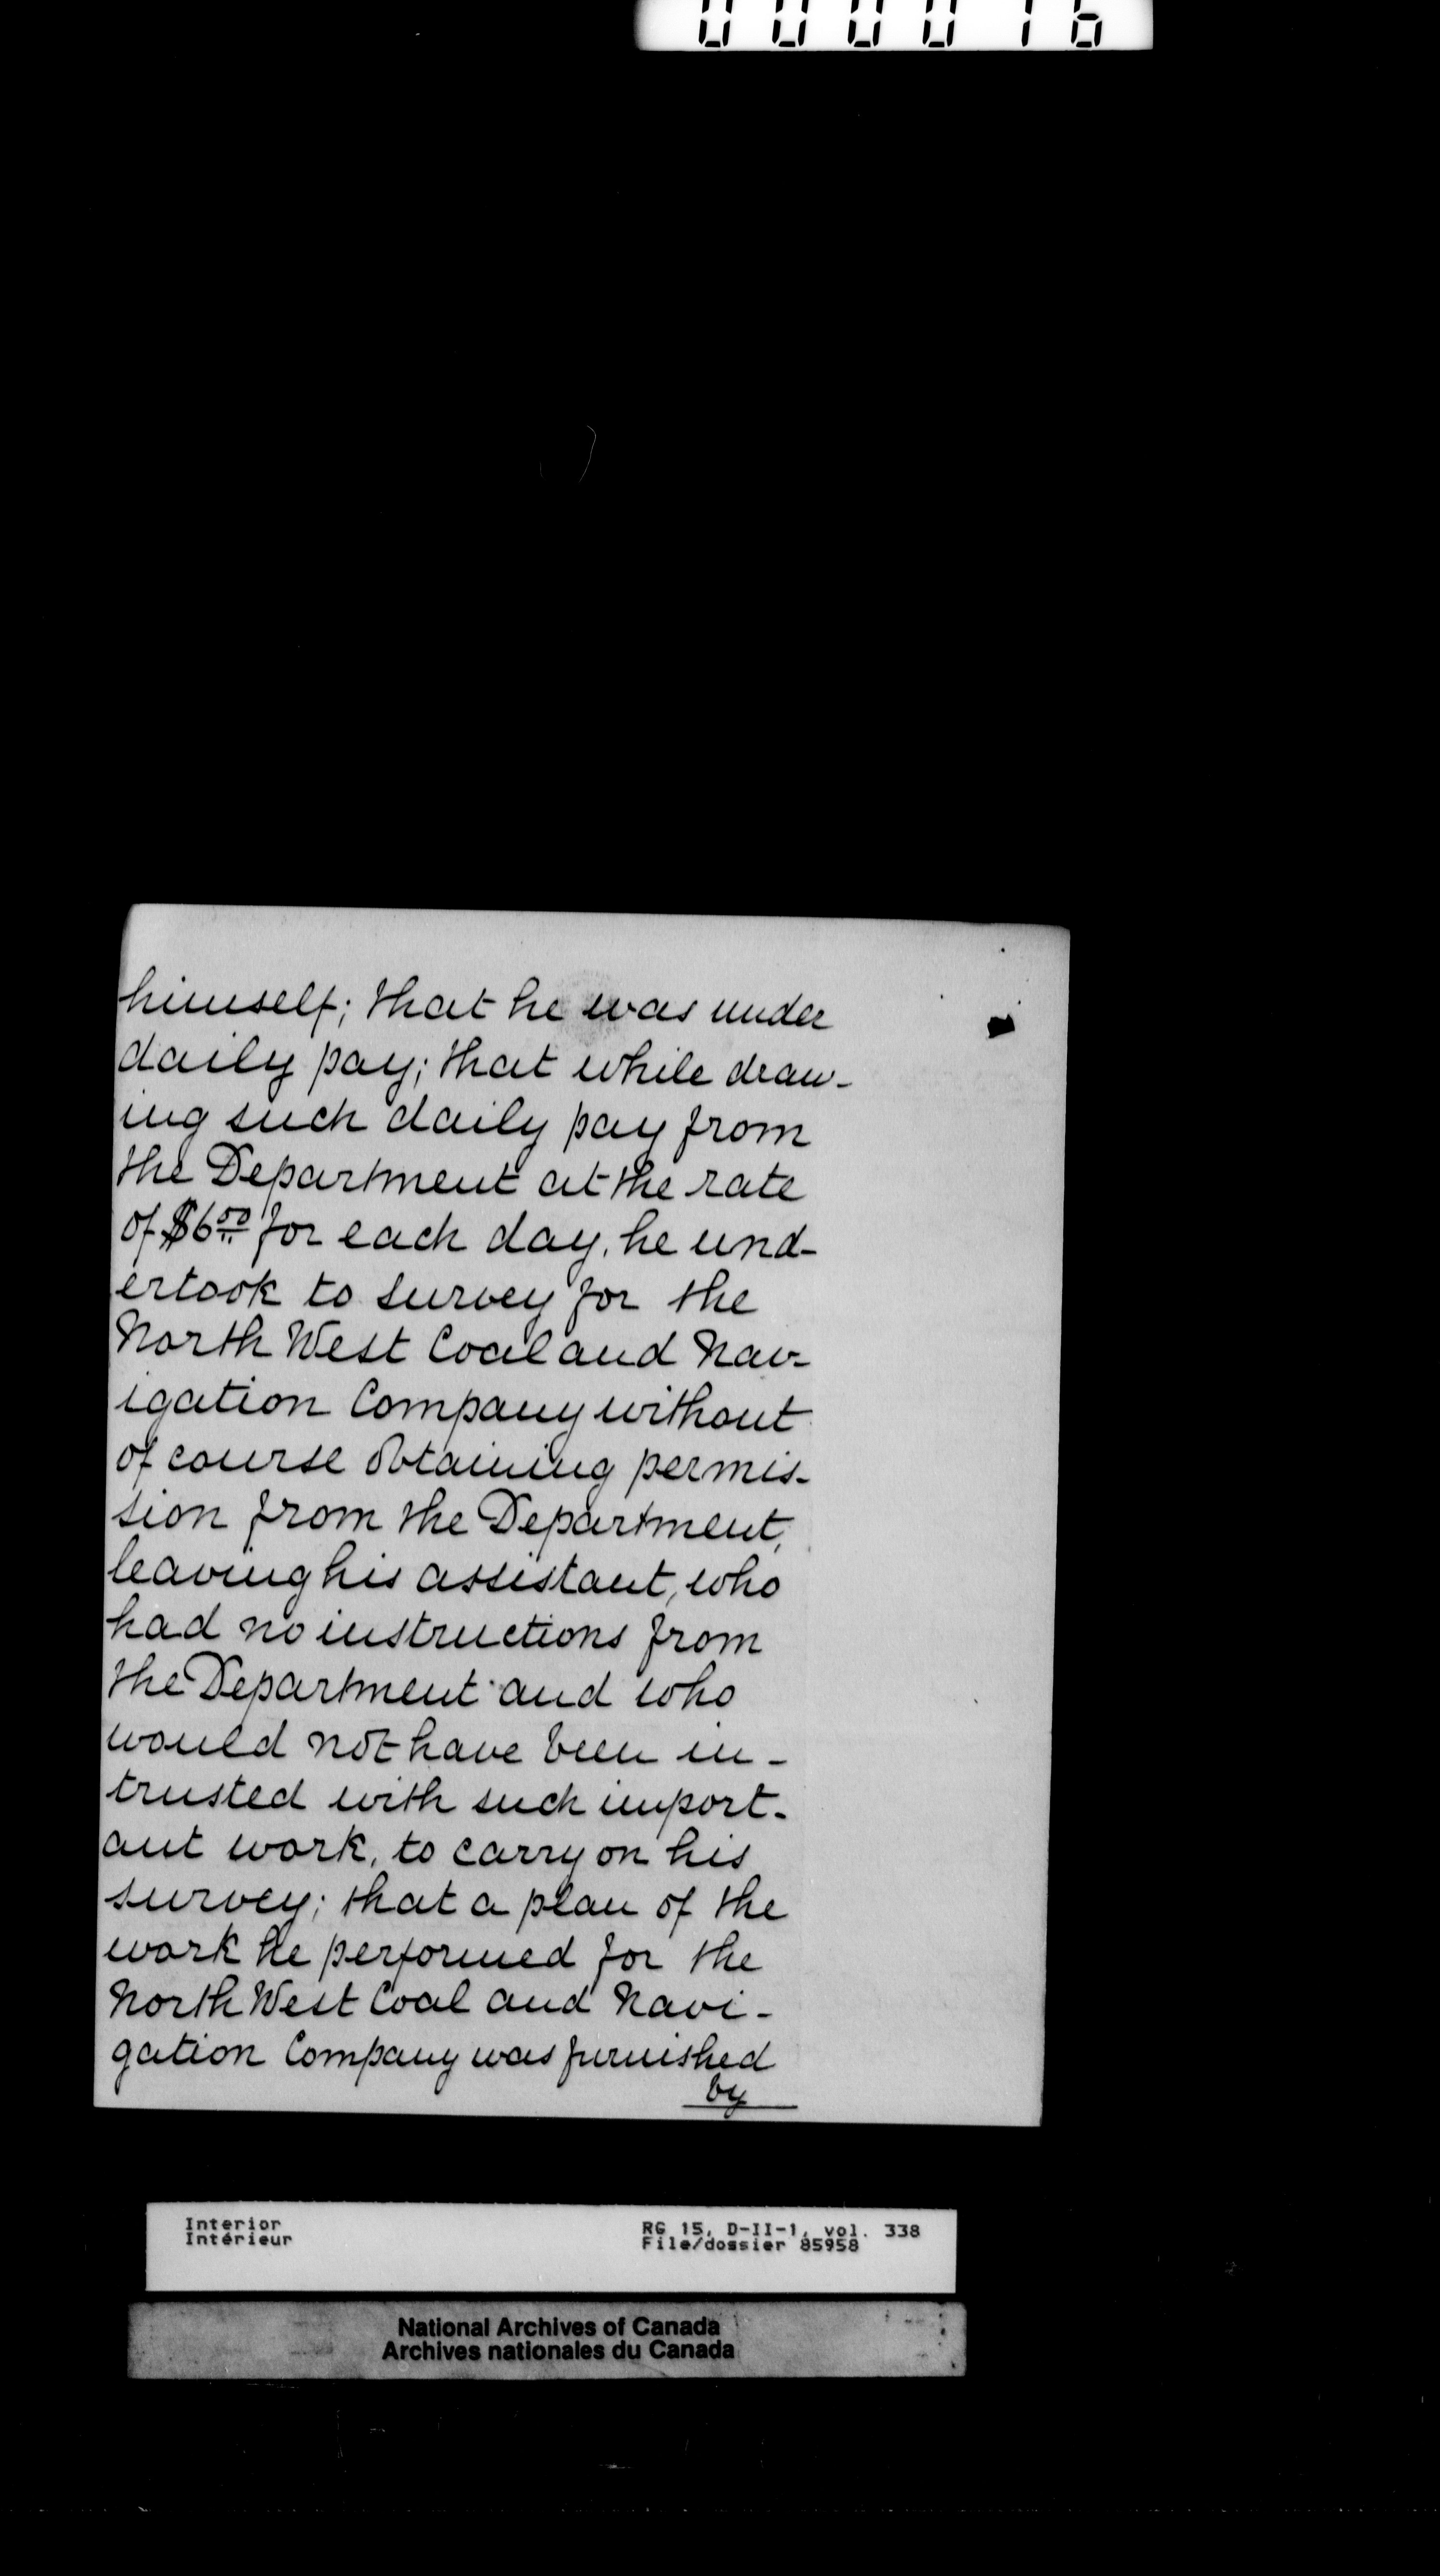 000016
himself; that he was under
daily pay; that while draw-
ing such daily pay from
the Department at the rate
of $6.50 for each day, he und-
ertook to survey for the
North West Coal and Nav-
igation Company without
of course obtaining permis-
sion from the Department,
leaving his assistant, who
had no instructions from
the Department and who
would not have been in-
trusted with such import-
ant work, to carry on his
survey; that a plan of the
work he performed for the
North West Coal and Navi-
gation Company was furnished
by
Interior
Intérieur
RG 15, D-II-1, vol. 338
File/dossier 85958
National Archives of Canada
Archives nationales du Canada